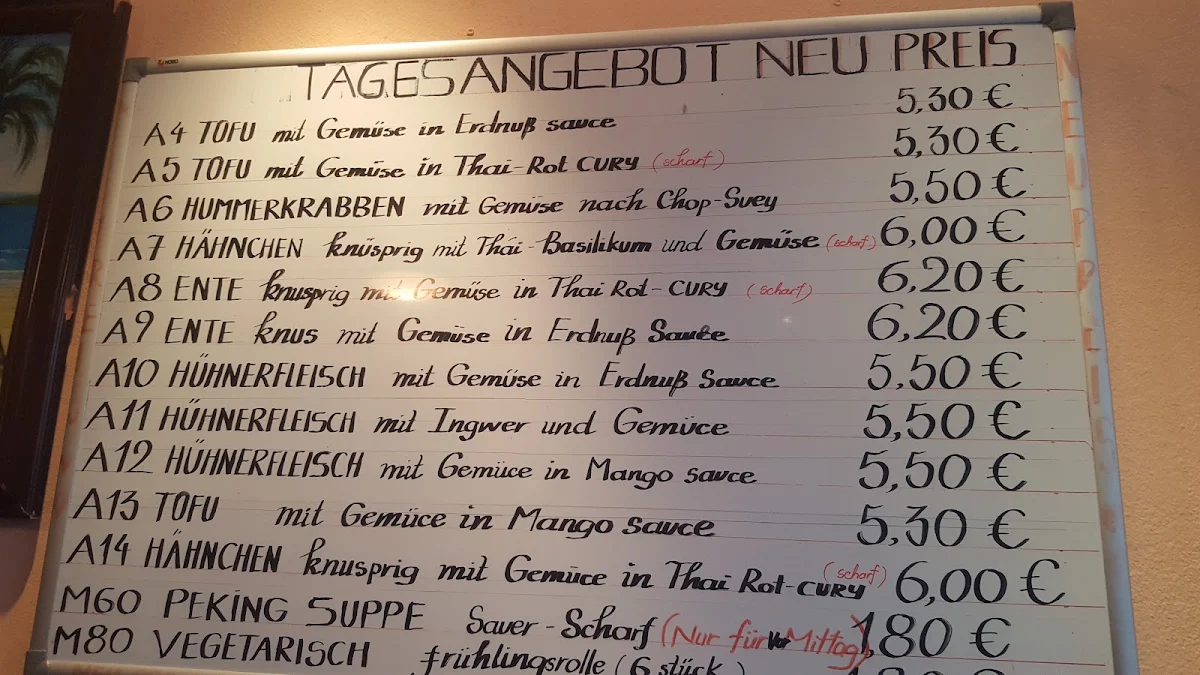 TAGESANGEBOT NEU PREIS
A4 TOFU mit Gemüse in Erdnuß sauce 5,30 €
A5 TOFU mit Gemüse in Thai-Rot CURY (scharf) 5,30 €
A6 HUMMERKRABBEN mit Gemüse nach Chop-Suey 5,50 €
A7 HÄHNCHEN knüsprig mit Thai-Basilikum und Gemüse (scharf) 6,00 €
A8 ENTE knusprig mit Gemüse in Thai Rot-CURY (scharf) 6,20 €
A9 ENTE knus mit Gemüse in Erdnuß Sauce 6,20 €
A10 HÜHNERFLEISCH mit Gemüse in Erdnuß Sauce 5,50 €
A11 HÜHNERFLEISCH mit Ingwer und Gemüce 5,50 €
A12 HÜHNERFLEISCH mit Gemüce in Mango sauce 5,50 €
A13 TOFU mit Gemüce in Mango sauce 5,30 €
A14 HÄHNCHEN knusprig mit Gemüce in Thai Rot-CURY (scharf) 6,00 €
M60 PEKING SUPPE Sauer-Scharf (Nur für Vor Mittag) 1,80 €
M80 VEGETARISCH frühlingsrolle (6 stück)